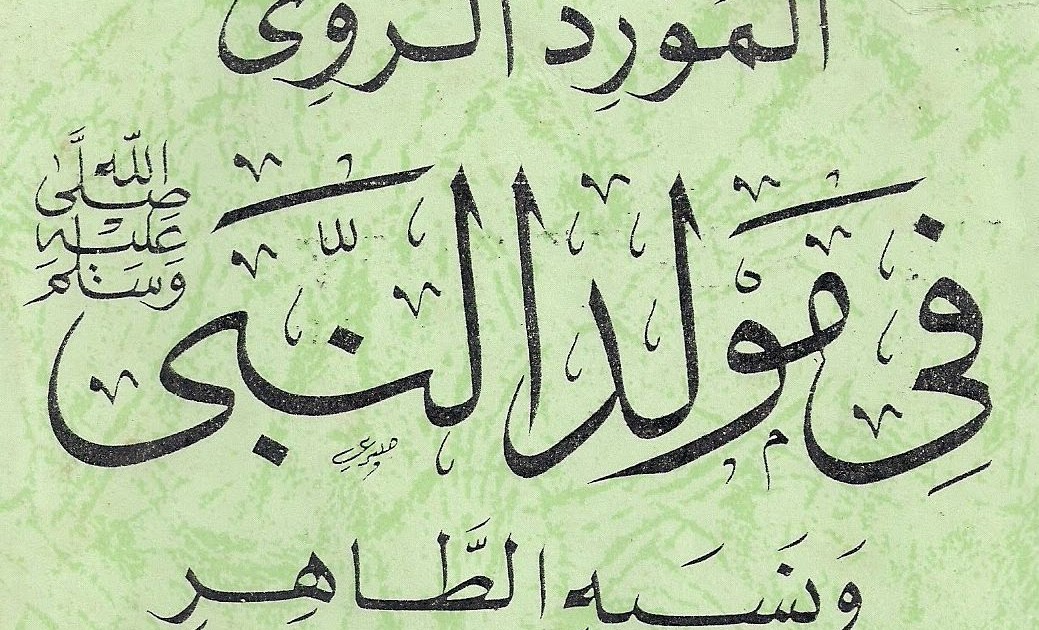 المَورِد الروِى
فِي مَوْلد النَّبِى
صَلَّى اللّٰه
عَليْهِ
وَسَلَّمَ
وَنسَبِهِ الطَّاهِرِ